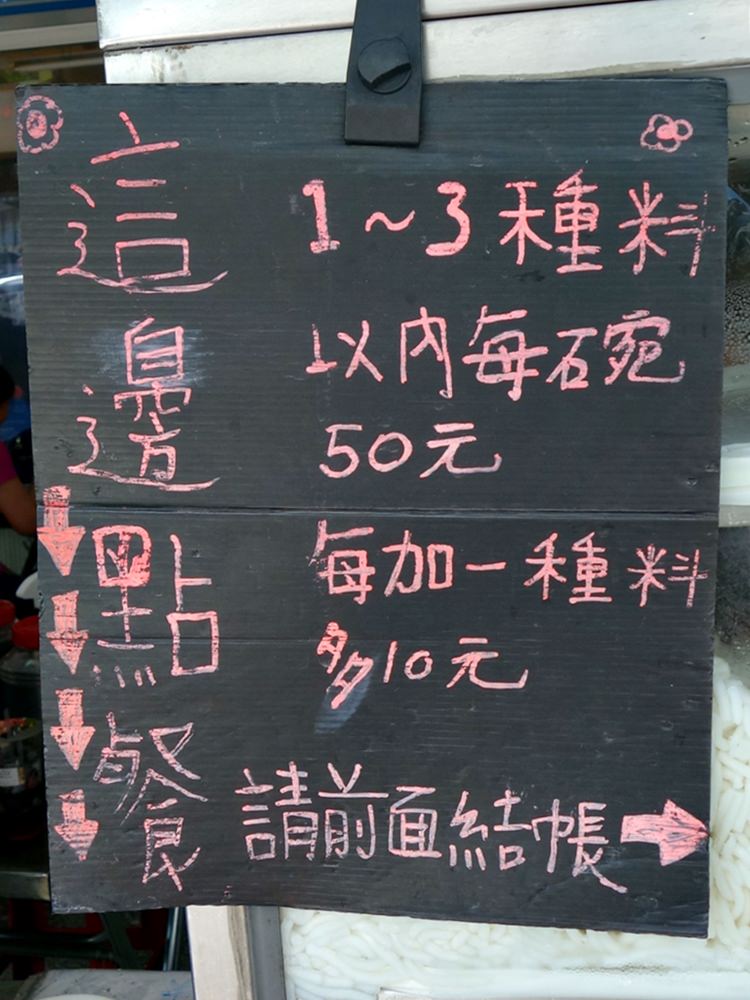 這邊點餐
1～3種料
以內每碗
50元
每加一種料
多10元
請前面結帳